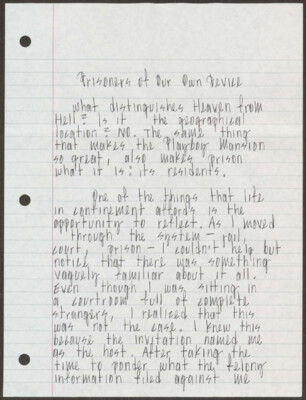 Prisoners of Our Own Device
What distinguishes Heaven from
Hell? Is it the geographical
location? NO. The same thing
that makes the Playboy Mansion
so great, also makes prison
what it is: its residents.
One of the things that life
in confinement affords is the
opportunity to reflect. As I moved
through the system – jail,
court, prison – I couldn't help but
notice that there was something
vaguely familiar about it all.
Even though I was sitting in
a courtroom full of complete
strangers, I realized that this
was not the case. I knew this
because the invitation named me
as the host. After taking the
time to ponder what the felony
information filed against me